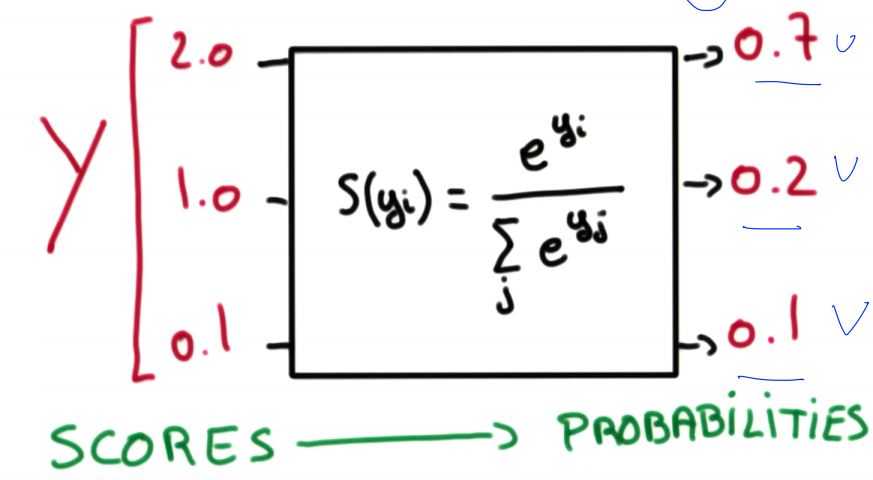 2.0 → 0.7
Y 1.0 S(yi) = e^yi / Σj e^yj → 0.2
0.1 → 0.1
SCORES → PROBABILITIES